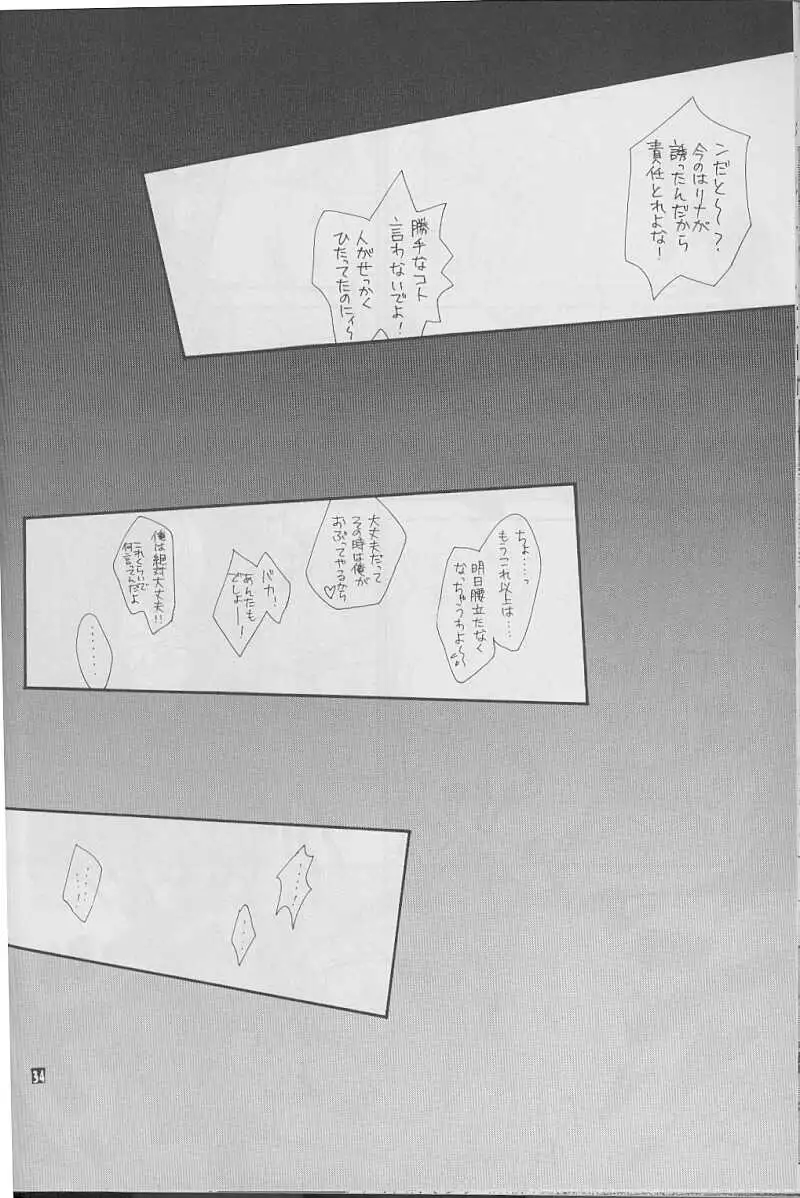 ンだと〜?
今のはリナが
誘ったんだから
責任とれよな!
勝手なコト
言わないでよ!
人がせっかく
ひたってたのにィ〜
ちょ……っ
もうこれ以上は…
明日腰立たなく
なっちゃうわよ〜
大丈夫だって
その時は俺が
おぶってやるから♡
バカ!
あんたも
でしょー!
俺は絶対大丈夫!!
これくらいで
何言ってんだよ
……
……
……
……
34